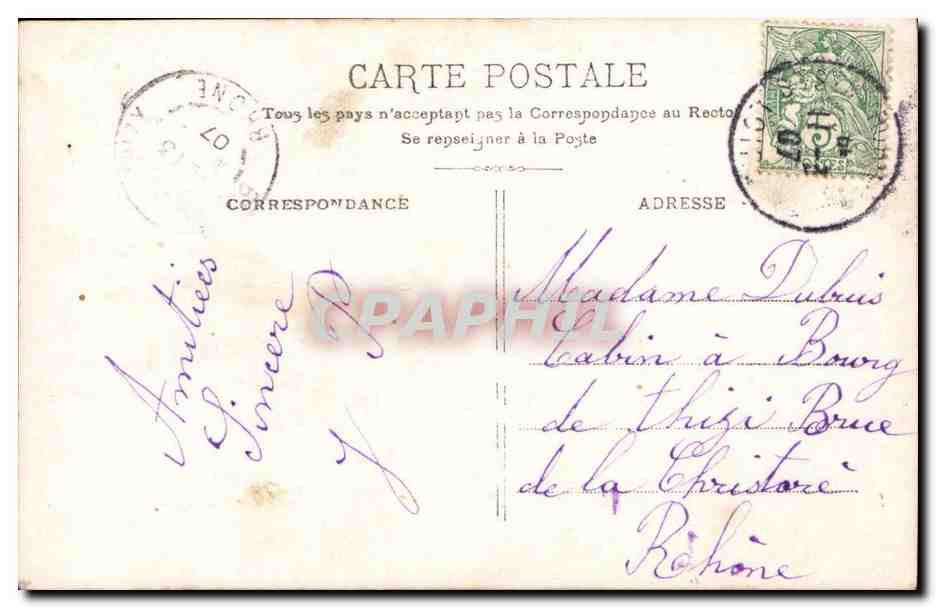 CARTE POSTALE
Tous les pays n'acceptant pas la Correspondance au Recto
Se renseigner à la Poste
CORRESPONDANCE
ADRESSE
RHONE
07
07
Amitiées
Sincere
J P
Madame Dubuis
Cabin à Bourg
de thizi Brue
de la Christorè
Rèhône
CPAPHIL